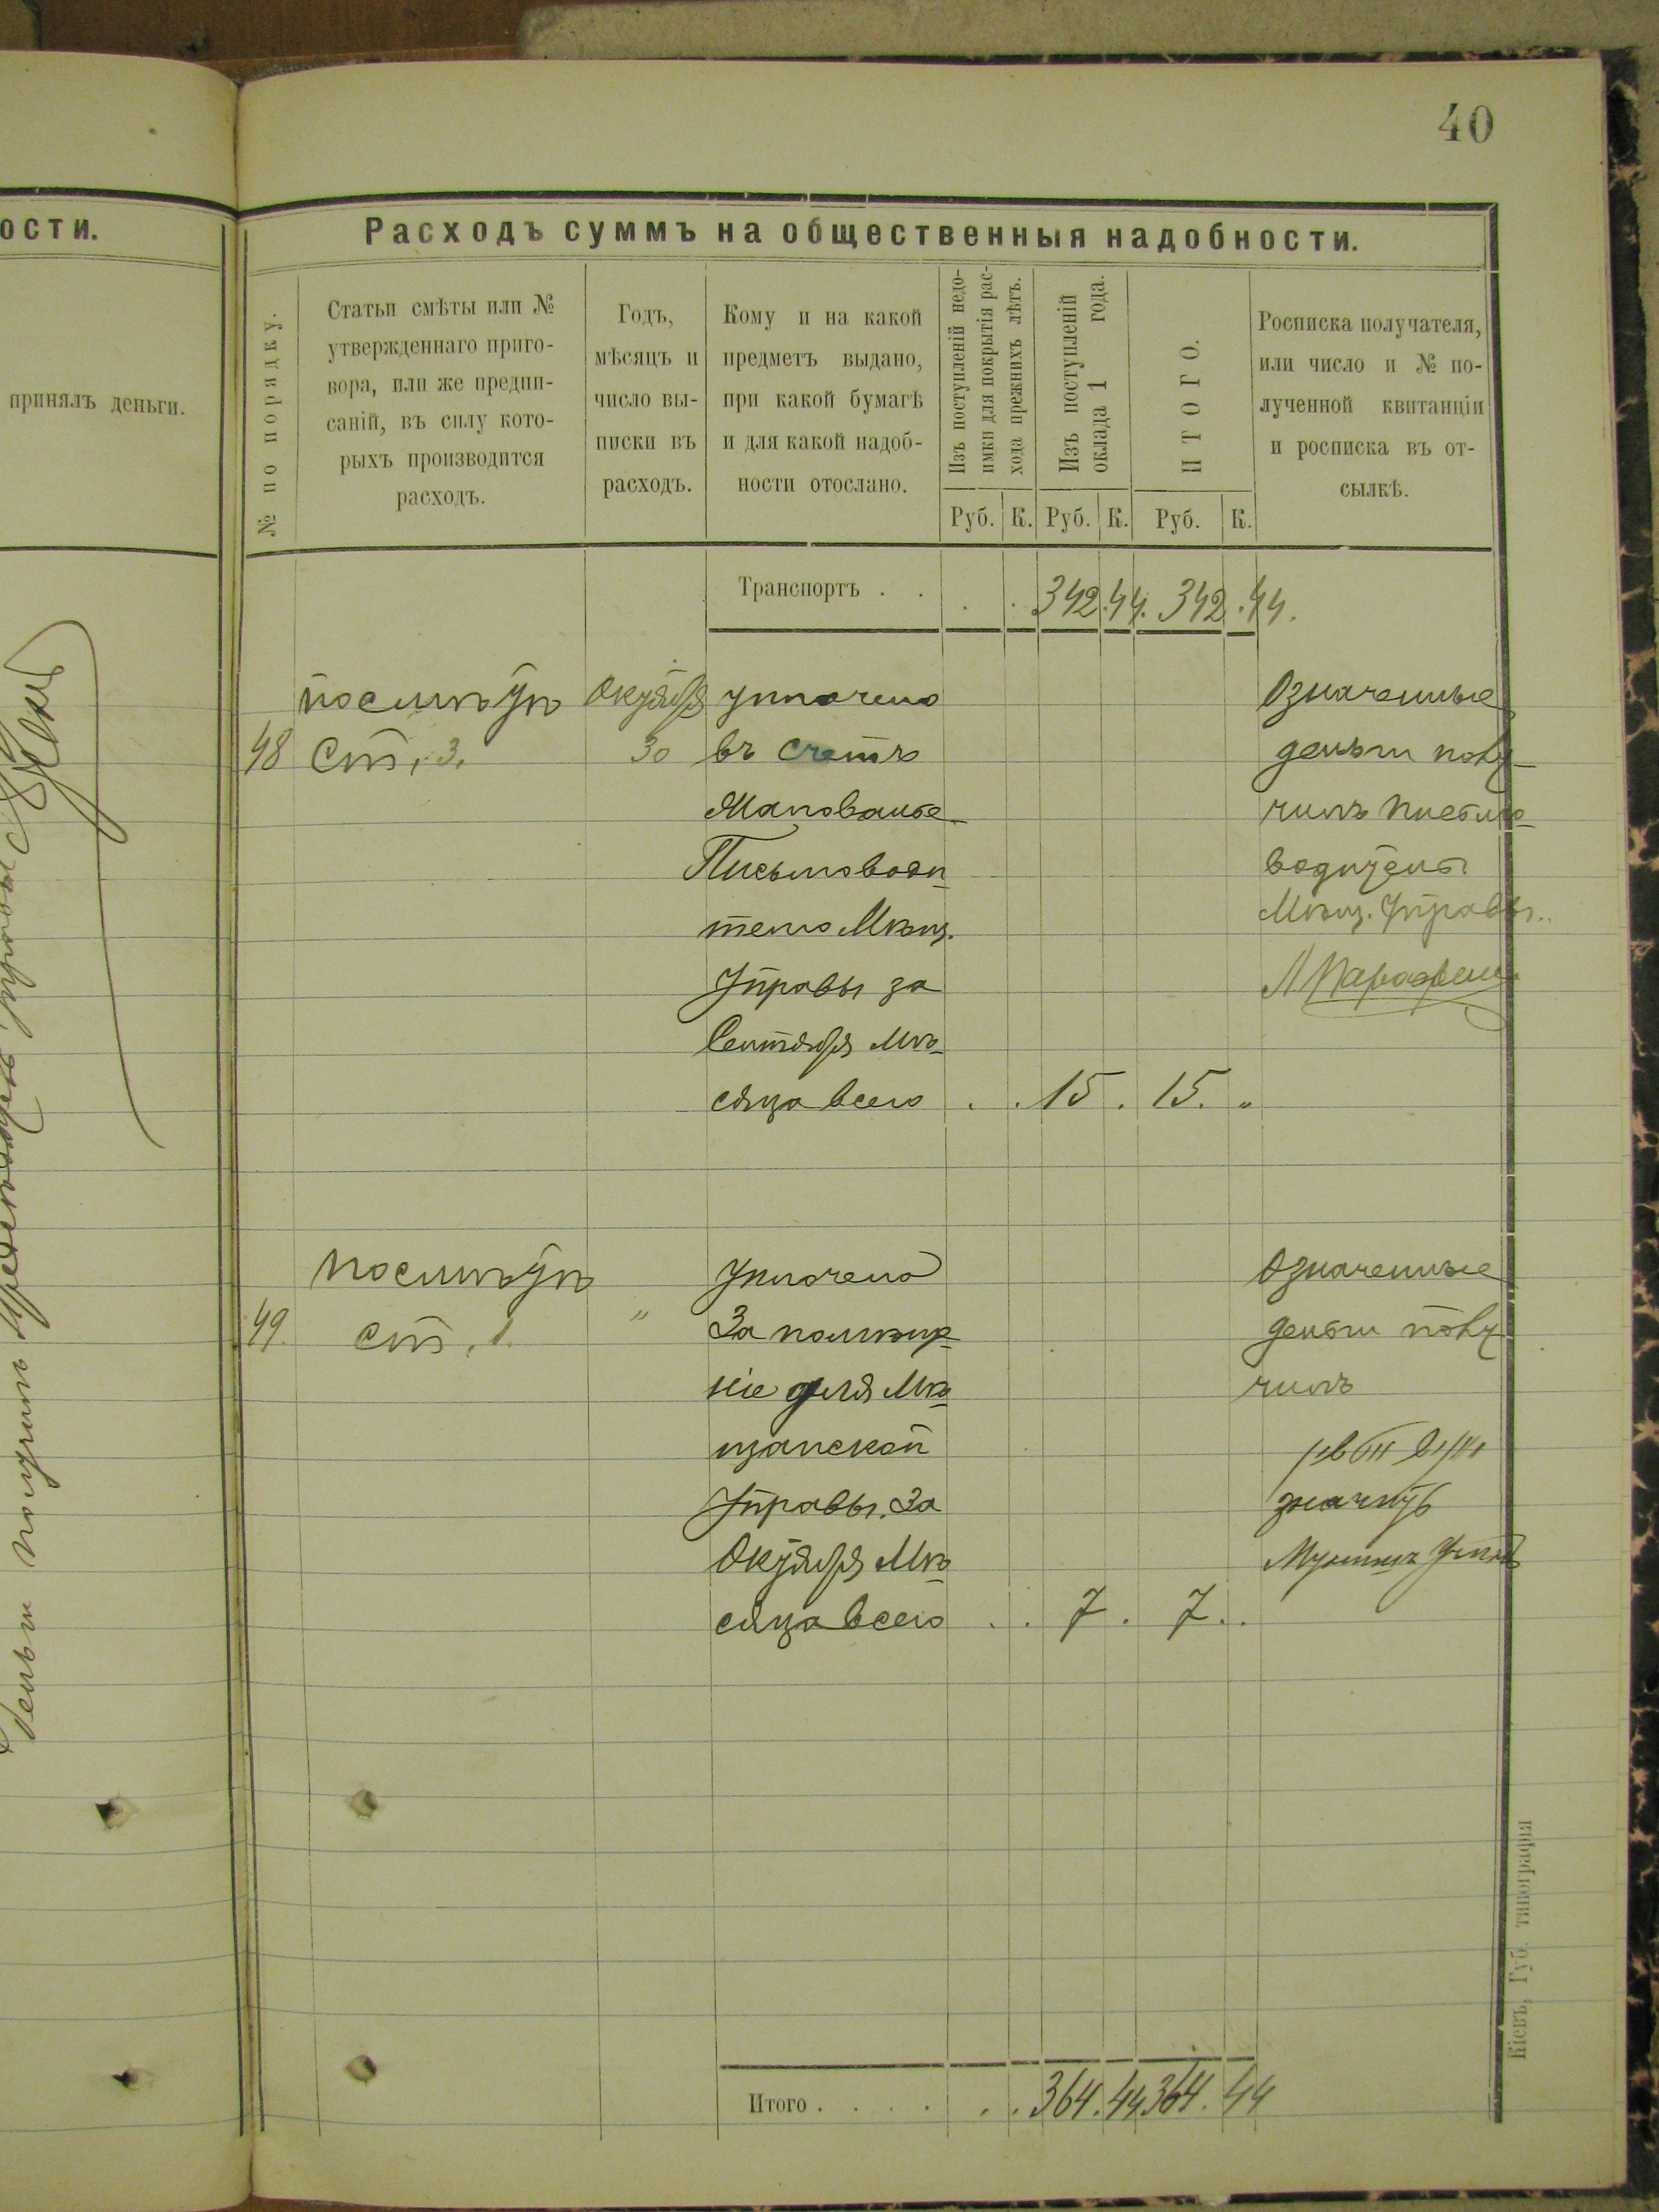 40
ости.
принялъ деньги.
Расходъ суммъ на общественныя надобности.
№ по порядку.
Статьи смѣты или №
утвержденнаго приго-
вора, или же предпи-
саній, въ силу кото-
рыхъ производится
расходъ.
Годъ,
мѣсяцъ и
число вы-
писки въ
расходъ.
Кому и на какой
предметъ выдано,
при какой бумагѣ
и для какой надоб-
ности отослано.
Изъ поступленій недо-
имки для покрытія рас-
хода прежнихъ лѣтъ.
Изъ поступленій
оклада 1 года.
ИТОГО.
Росписка получателя,
или число и № по-
лученной квитанціи
и росписка въ от-
сылкѣ.
Руб. К. Руб. К. Руб. К.
Транспортъ . . . . 342.44. 342.44.
по смѣтѣ Октября уплочено
48 ст. 3. 30 въ счетъ
жалованье
Письмоводи
телю Мѣщ.
Управы за
Сентябрь мѣ
сяца всего . . 15 . 15. „
Означенные
деньги полу-
чилъ письмо
водитель
Мѣщ. Управы..
по смѣтѣ уплочено
49. ст. 1. „ За помѣще
ніе для Мѣ
щанской
Управы за
Октябрь мѣ
сяца всего . . 7 . 7 . .
Означенные
деньги полу
чилъ
значитъ
Итого . . . . . . 364.44 364.44
Кіевъ, Губ. типографія
деньги получилъ